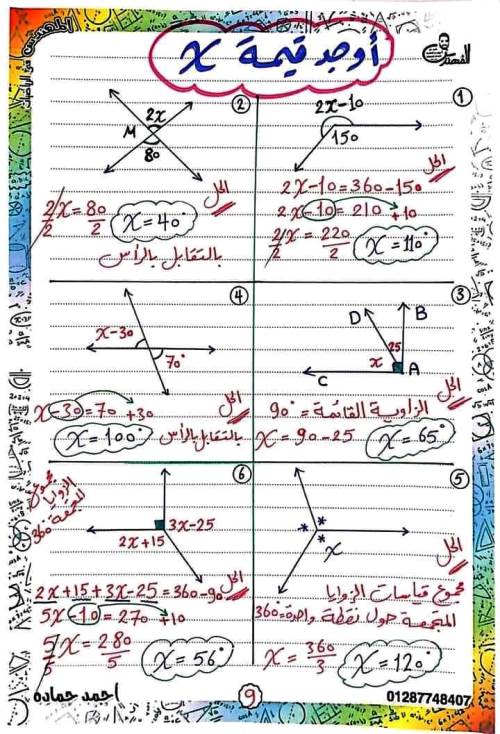 أوجد قيمة x
المهندس في الرياضيات
المهندس
①
2x-10
150
الحل
2x-10 = 360-150
2x-10 = 210 +10
2x/2 = 220/2
x = 110°
②
2x
M
80
الحل
2x/2 = 80/2
x = 40°
بالتقابل بالرأس
③
D
B
25
x
A
C
الحل
الزاوية القائمة = 90°
x = 90-25
x = 65°
④
x-30
70°
الحل
x-30 = 70 +30
x = 100°
بالتقابل بالرأس
⑤
*
*
*
x
الحل
مجموع قياسات الزوايا
المتجمعة حول نقطة واحدة = 360
x = 360/3
x = 120°
⑥
3x-25
2x+15
مجموع
الزوايا
المتجمعة 360
الحل
2x+15+3x-25 = 360-90
5x-10 = 270 +10
5x/5 = 280/5
x = 56°
احمد حماده
9
01287748407